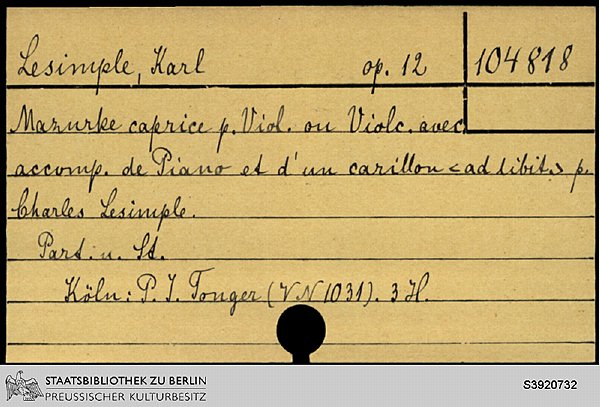 Lesimple, Karl op. 12 104818
Mazurke caprice p. Viol. ou Violc. avec
accomp. de Piano et d'un carillon <ad libit.> p.
Charles Lesimple.
Part. u. St.
Köln: P. J. Tonger (VN 1031). 3 H.
STAATSBIBLIOTHEK ZU BERLIN
PREUSSISCHER KULTURBESITZ
S3920732